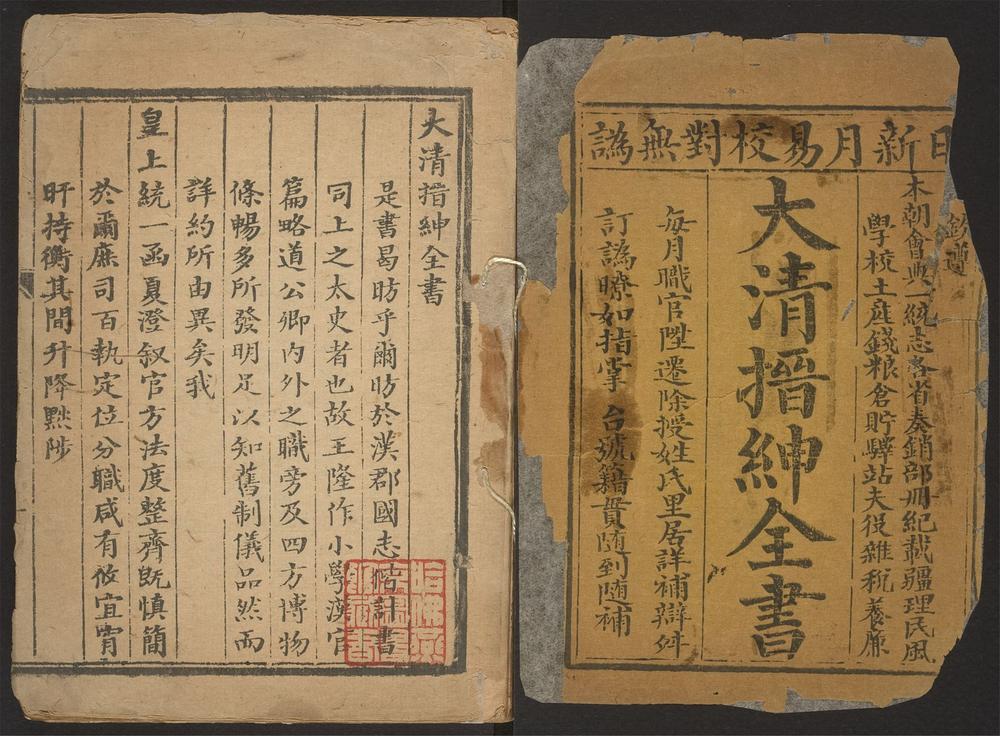 日新月易校對無譌
欽遵
本朝會典一統志各省奏銷部冊紀載疆理民風
學校土產錢粮倉貯驛站夫役雜税養廉
大清搢紳全書
每月職官陞遷除授姓氏里居詳補辯舛
訂譌暸如指掌 台號籍貫随到随補
大清搢紳全書
是書曷昉乎爾昉於漢郡國志偕計書
同上之太史者也故王隆作小學漢官
篇略道公卿內外之職旁及四方博物
條暢多所發明足以知舊制儀品然而
詳約所由異矣我
皇上統一函夏澄叙官方法度整齊既慎簡
於爾庶司百執定位分職咸有攸宜宵
旰持衡其間升降黜陟